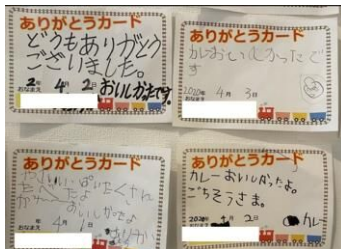 ありがとうカード
どうもありがとう
ございました。
2年 4月 2日 おいしかったです。
おなまえ
ありがとうカード
カレおいしかったで
す
2020年 4月 3日
おなまえ
ありがとうカード
おいしかったよ
年 4月 1日
おなまえ
ありがとうカード
カレーおいしかったよ。
ごちそうさま。
2020年 4月 2日
カレー
おなまえ